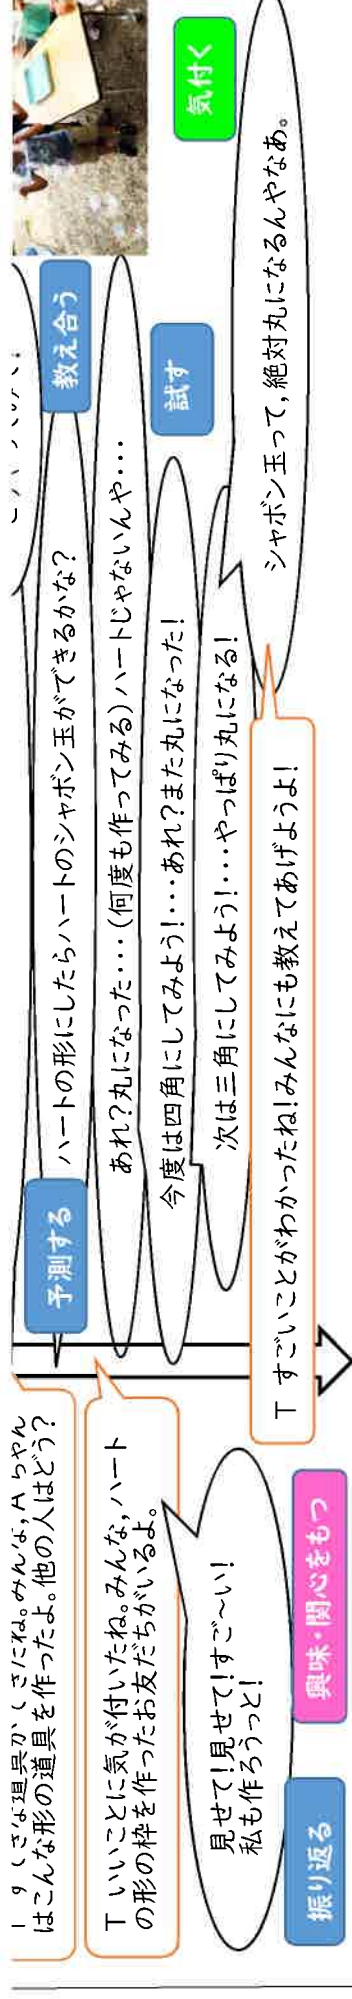 はこんな形の道具を作ったよ。他の人はどう?
T いいことに気が付いたね。みんな,ハート
の形の枠を作ったお友だちがいるよ。
見せて!見せて!すご~い!
私も作ろうっと!
振り返る
興味・関心をもつ
予測する
ハートの形にしたらハートのシャボン玉ができるかな?
教え合う
あれ?丸になった・・・(何度も作ってみる)ハートじゃないんや・・・
試す
今度は四角にしてみよう!・・・あれ?また丸になった!
次は三角にしてみよう!・・・やっぱり丸になる!
T すごいことがわかったね!みんなにも教えてあげようよ!
シャボン玉って,絶対丸になるんやなあ。
気付く